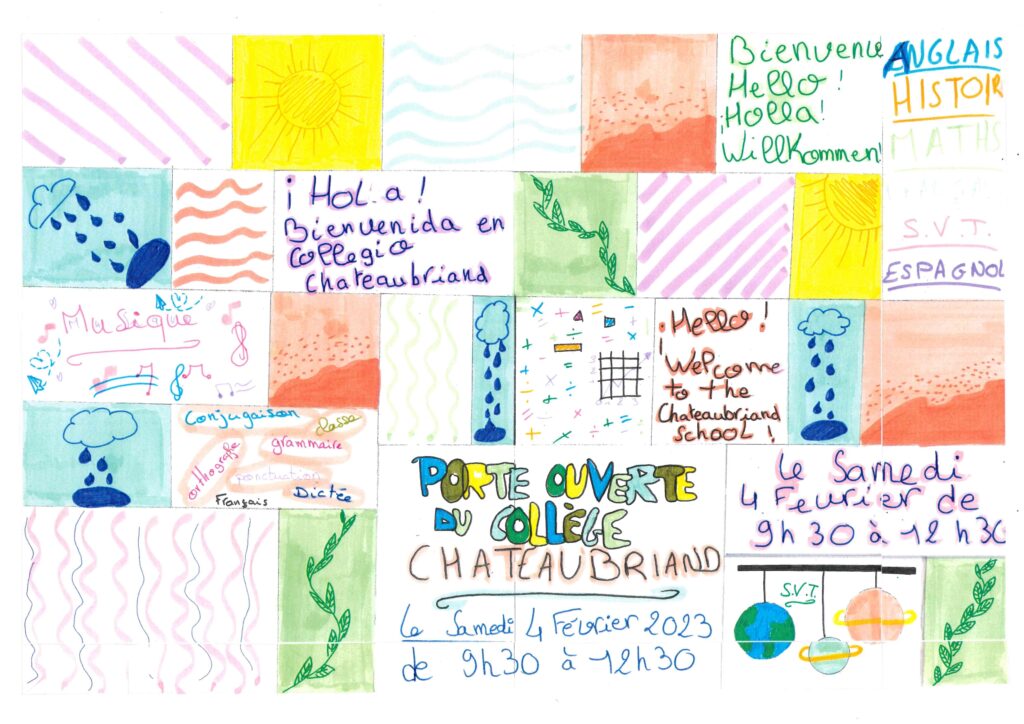 Bienvenue
Hello !
¡Holla!
Willkommen!
ANGLAIS
HISTOIR
MATHS
S.V.T.
ESPAGNOL
¡ HOL a !
Bienvenida en
collegio
Chateaubriand
Musique
¡Hello !
¡Welcome
to the
Chateaubriand
SCHOOL !
Conjugaison
classe
grammaire
orthografe
ponctuation
Français
Dictée
PORTE OUVERTE
DU COLLÈGE
CHATEAUBRIAND
Le Samedi 4 Février 2023
de 9h30 à 12h30
Le Samedi
4 Fevrier de
9h30 à 12h30
S.V.T.